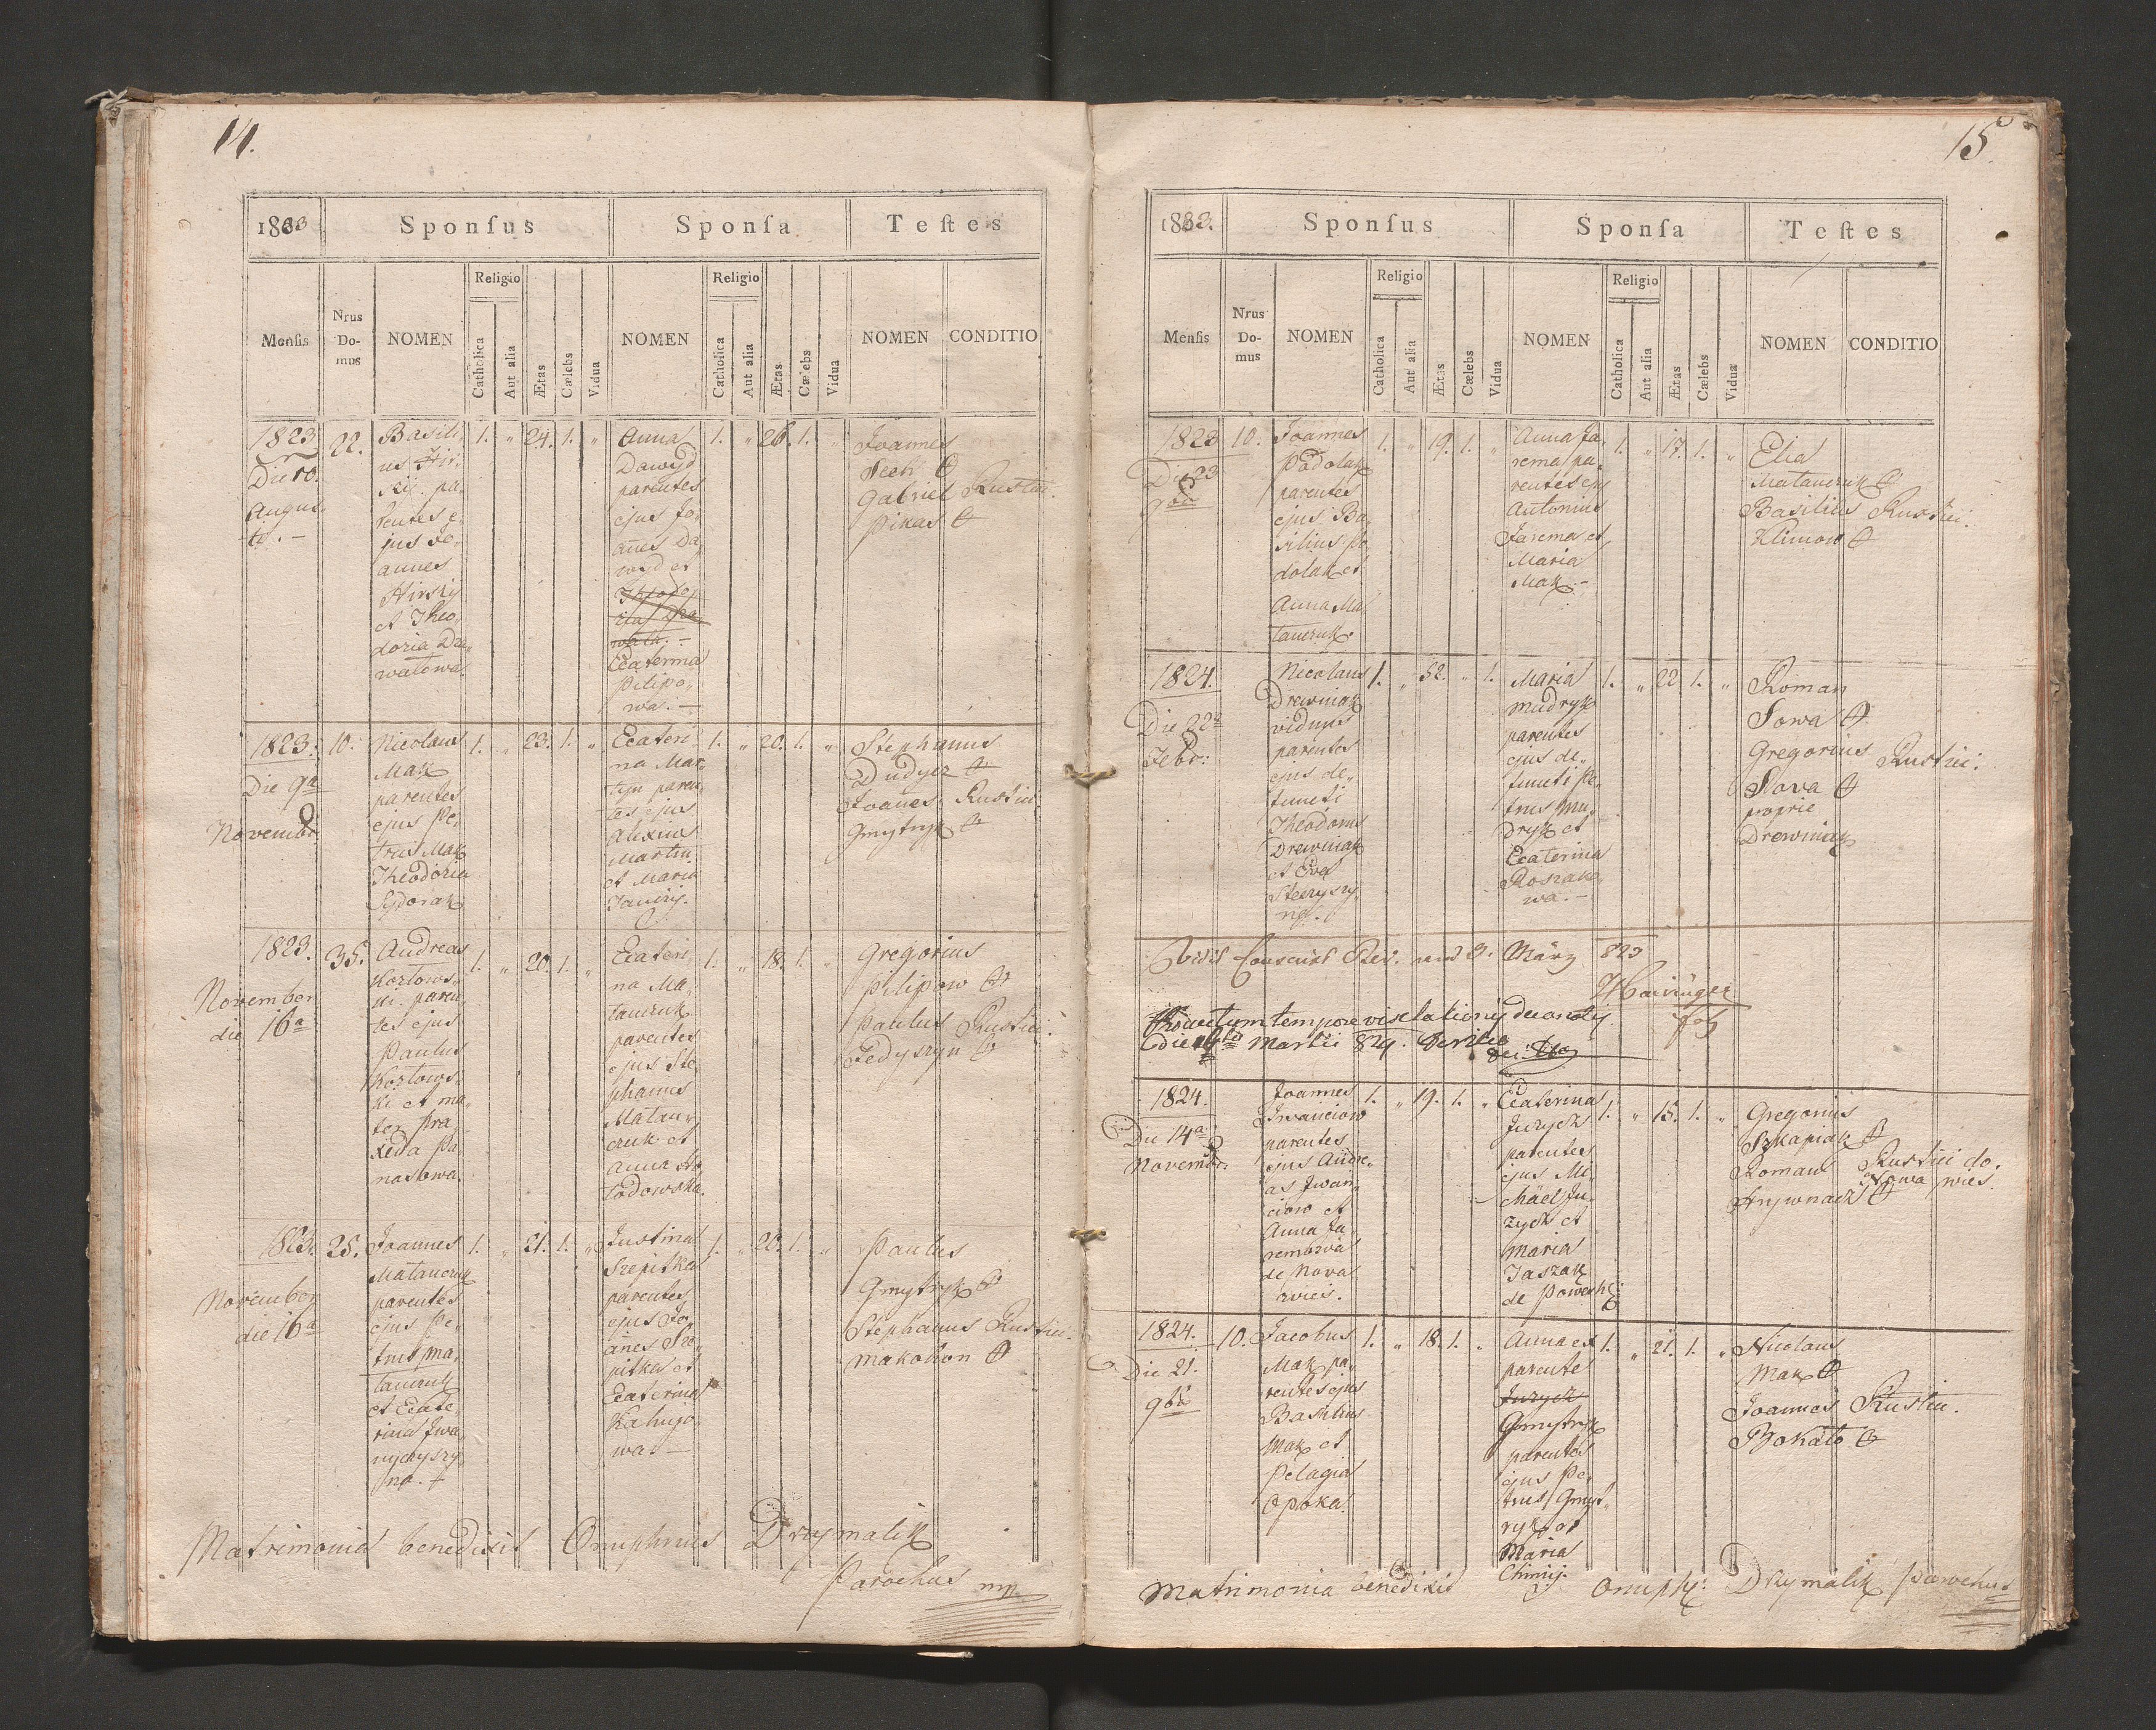 14.
1823
Sponſus
Sponſa
Teſtes
Menſis
Nrus Do- mus
NOMEN
Religio
Catholica
Aut alia
Ætas
Cælebs
Vidua
NOMEN
Religio
Catholica
Aut alia
Ætas
Cælebs
Vidua
NOMEN
CONDITIO
1823
Die 10.
Augus-
ti. —
22.
Basili
us Hir-
skij. pa-
rentes e-
jus Jo-
annes
Hirskij
et Theo-
doria
walowa.
1. „ 24. 1. „
Anna
Dawyd
parentes
ejus Jo-
añes Da-
wyd et
Ecaterina
Pilipo-
wa. —
1. „ 26. 1. „
Joannes
Gabriel Rustici.
Pikas
1823.
Die 9a
Novembr.
10.
Nicolaus
Mak
parentes
ejus Pe-
trus Mak
Theodoria
Sydorak
1. „ 23. 1. „
Ecateri-
na Mar-
tyn paren-
tes ejus
Alexius
Martyn
et Maria
1. „ 20. 1. „
Stephanus
Dudycz
Joanes Rustici.
Gmytryk
1823.
November
die 16a
35.
Andreas
Kozlows-
ki. paren-
tes ejus
Paulus
Kozlows-
ki et ma-
ter Pra-
xeda Pa-
nasowa.
1. „ 20. 1. „
Ecateri-
na Ma-
tanczuk
parentes
ejus Ste-
phanus
Matan-
czuk et
Anna
1. „ 18. 1. „
Gregorius
Pilipow
Paulus Rustici.
Fedyszyn
1823.
November
die 16a
25.
Joannes
Matanczuk
parentes
ejus Pe-
trus Ma-
tanczuk
et Ecate-
rina Iwa-
nychyszy-
na. +
1. „ 21. 1. „
Justina
Szepitka
parentes
ejus Jo-
añes Sze-
pitka et
Ecaterina
wa. —
1. „ 20. 1. „
Paulus
Gmytryk
Stephanus Rustici.
Makohon
Matrimonia benedixit Onuphrius Drymalik
Parochus mp
15.
1823.
Sponſus
Sponſa
Teſtes
Menſis
Nrus Do- mus
NOMEN
Religio
Catholica
Aut alia
Ætas
Cælebs
Vidua
NOMEN
Religio
Catholica
Aut alia
Ætas
Cælebs
Vidua
NOMEN
CONDITIO
1823
Die 23
10.
Joannes
Podolak
parentes
ejus Ba-
silius Po-
dolak et
Anna Ma-
tanczuk.
1. „ 19. 1. „
Anna Ja-
rema pa-
rentes ejus
Antonius
Jarema et
Maria
Mak. —
1. „ 17. 1. „
Elia
Matanczuk
Basilius Rustici.
Klimow
1824.
Die 22a
Febr:
Nicolaus
Drewniak
viduus
parentes
ejus de-
functi
Theodorus
Drewniak
et Eva
1. „ 52. „ 1.
Maria
Mudryk
parentes
ejus de-
functi Pe-
trus Mu-
dryk et
Ecaterina
wa. —
1. „ 22 1. „
Roman
Sowa
Gregorius Rustici.
Sova
proprie
Drewniak
Conscript Rev. 3. März 823
tempore visitationis
die Martii 824.
1824.
Die 14a
Novembr.
Joannes
Iwanciow
parentes
ejus Andre-
as Iwan-
ciow et
Anna Ja-
remowa
de Nova
wies.
1. „ 19. 1. „
Ecaterina
Juzych
parentes
ejus Mi-
chäel Ju-
zych et
Maria
Jaszak
1. „ 15. 1. „
Gregorius
Szkapiak
Roman Rustici de
Nowa wies.
1824.
Die 21.
9br
10.
Jacobus
Mak pa-
rentes ejus
Basilius
Mak et
Pelagia
Opoka.
1. „ 18. 1. „
Anna ex
parente
Juzych
Gmytryk
parentes
ejus Pe-
trus Gmyt-
ryk et
Maria
1. „ 21. 1. „
Nicolaus
Mak
Joannes Rustici.
Bokalo
Matrimonia benedixit Onuph: Drymalik parochus